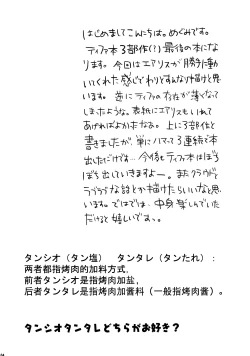 はじめましてこんにちは。めぐみです。
ティファ本3部作(!)最後の本にな
ります。今回はエアリスが勝手に動
いてくれた感じでわりとすんなり描けたと思
います。逆にティファの存在が薄くなって
しまったような。表紙にエアリスもいれて
あげればよかったなぁ。上に3部作と
書きましたが、単にハマって3連続で本
出しただけです…今後もティファ本はぼち
ぼち出していきますよー。またクラウドと
ラブラブな話とか描けたらいいなと思
います。ではでは、中身楽しんでいた
だけると嬉しいです。
タンシオ（タン塩） タンタレ（タンたれ）:
两者都指烤肉的加料方式.
前者タンシオ是指烤肉加盐,
后者タンタレ是指烤肉加酱料（一般指烤肉酱）。
タンシオタンタレどちらがお好き？